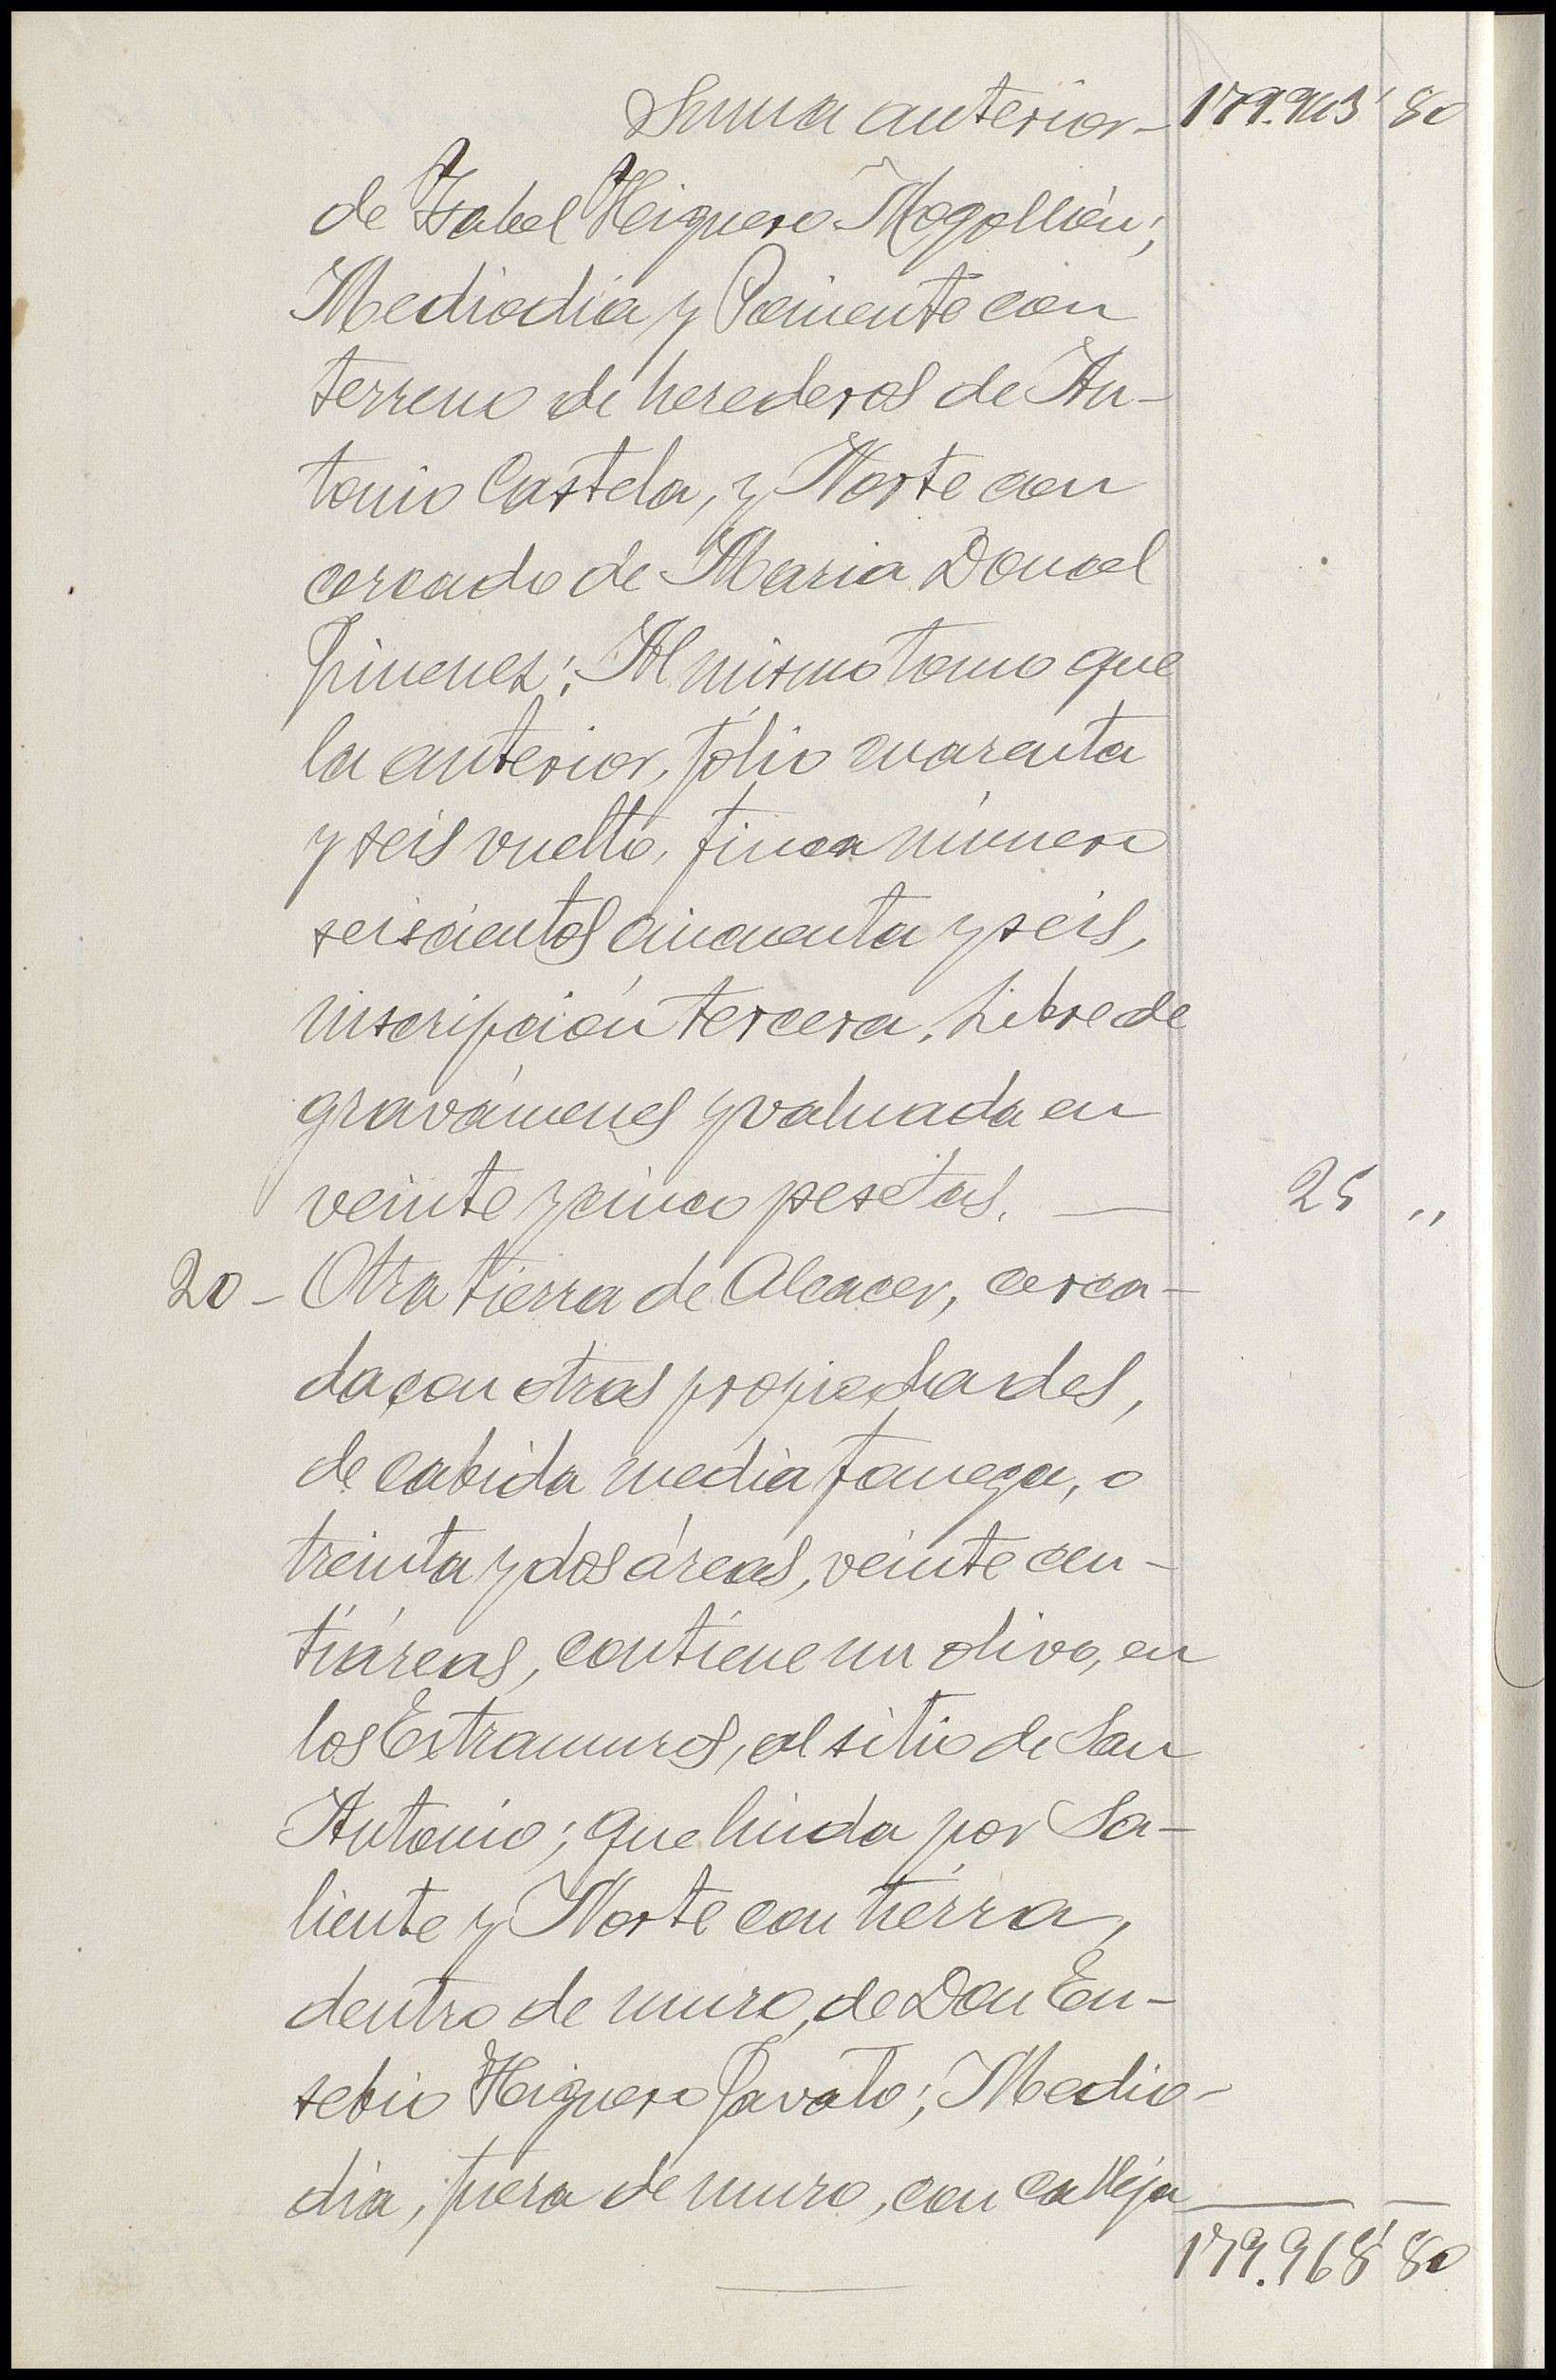 Suma anterior - 179.943' 80
de Isabel Higuero Mogollón;
Mediodia y Poniente con
terreno de herederos de An-
tonio Castela, y Norte con
cercado de Maria Doncel
Jimenez; Al mismo tomo que
la anterior, fólio cuarenta
y seis vuelto, finca número
seiscientos cincuenta y seis,
inscripción tercera. Libre de
gravámenes y valuada en
veinte y cinco pesetas. — 25 ,,
20 - Otra tierra de Alcacer, cerca-
da con otras propiedades,
de cabida media fanega, o
treinta y dos áreas, veinte cen-
tiáreas, contiene un olivo, en
los Extramuros, al sitio de San
Antonio; que linda por Sa-
liente y Norte con tierra,
dentro de muro, de Don Eu-
sebio Higuero Javato; Medio-
dia, fuera de muro, con calleja
179.968' 80